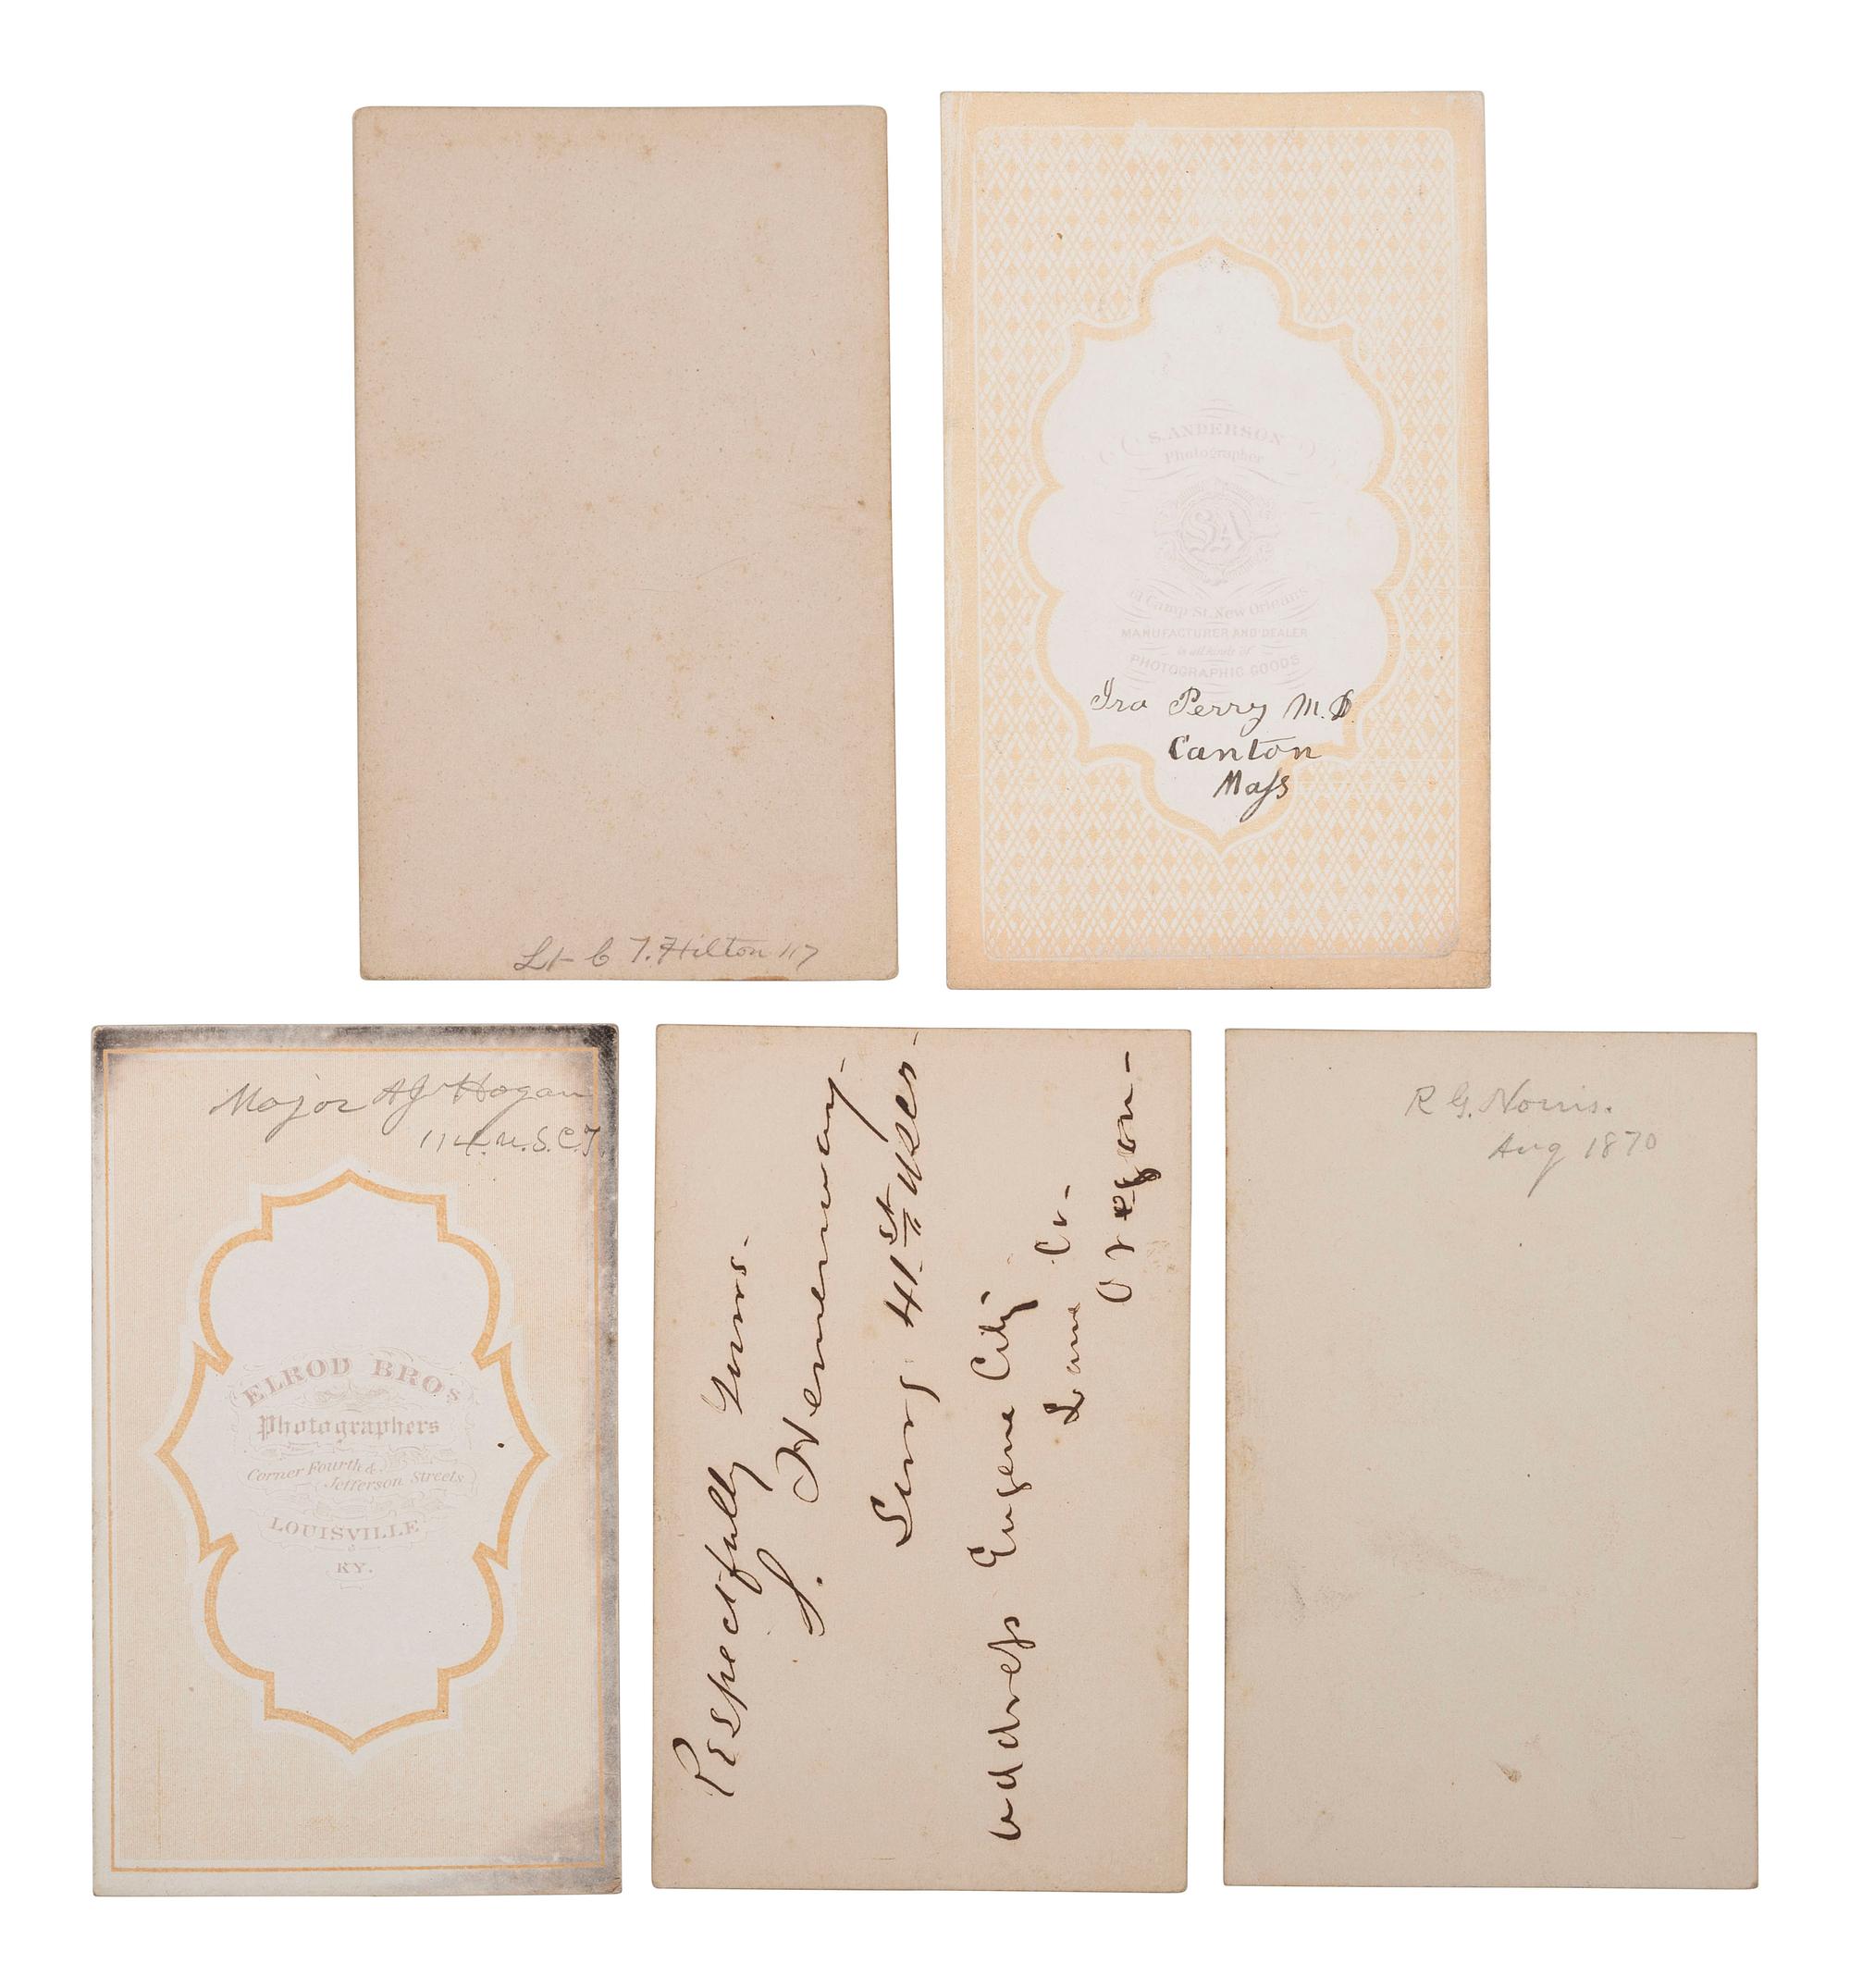 Lt C T. Hilton 117
S. ANDERSON
Photographer
SA
Camp St. New Orleans
MANUFACTURER AND DEALER
in all kinds of
PHOTOGRAPHIC GOODS
Ira Perry M.D
Canton
Mass
Major AJ Hogan
114. U.S.C.T.
ELROD BROS
Photographers
Corner Fourth &
Jefferson Streets
LOUISVILLE
KY.
Respectfully Yours.
S. Hemenway-
Surg. 41st USCI-
address Eugene City
Lane Co-
Oregon-
R G. Norris.
Aug 1870